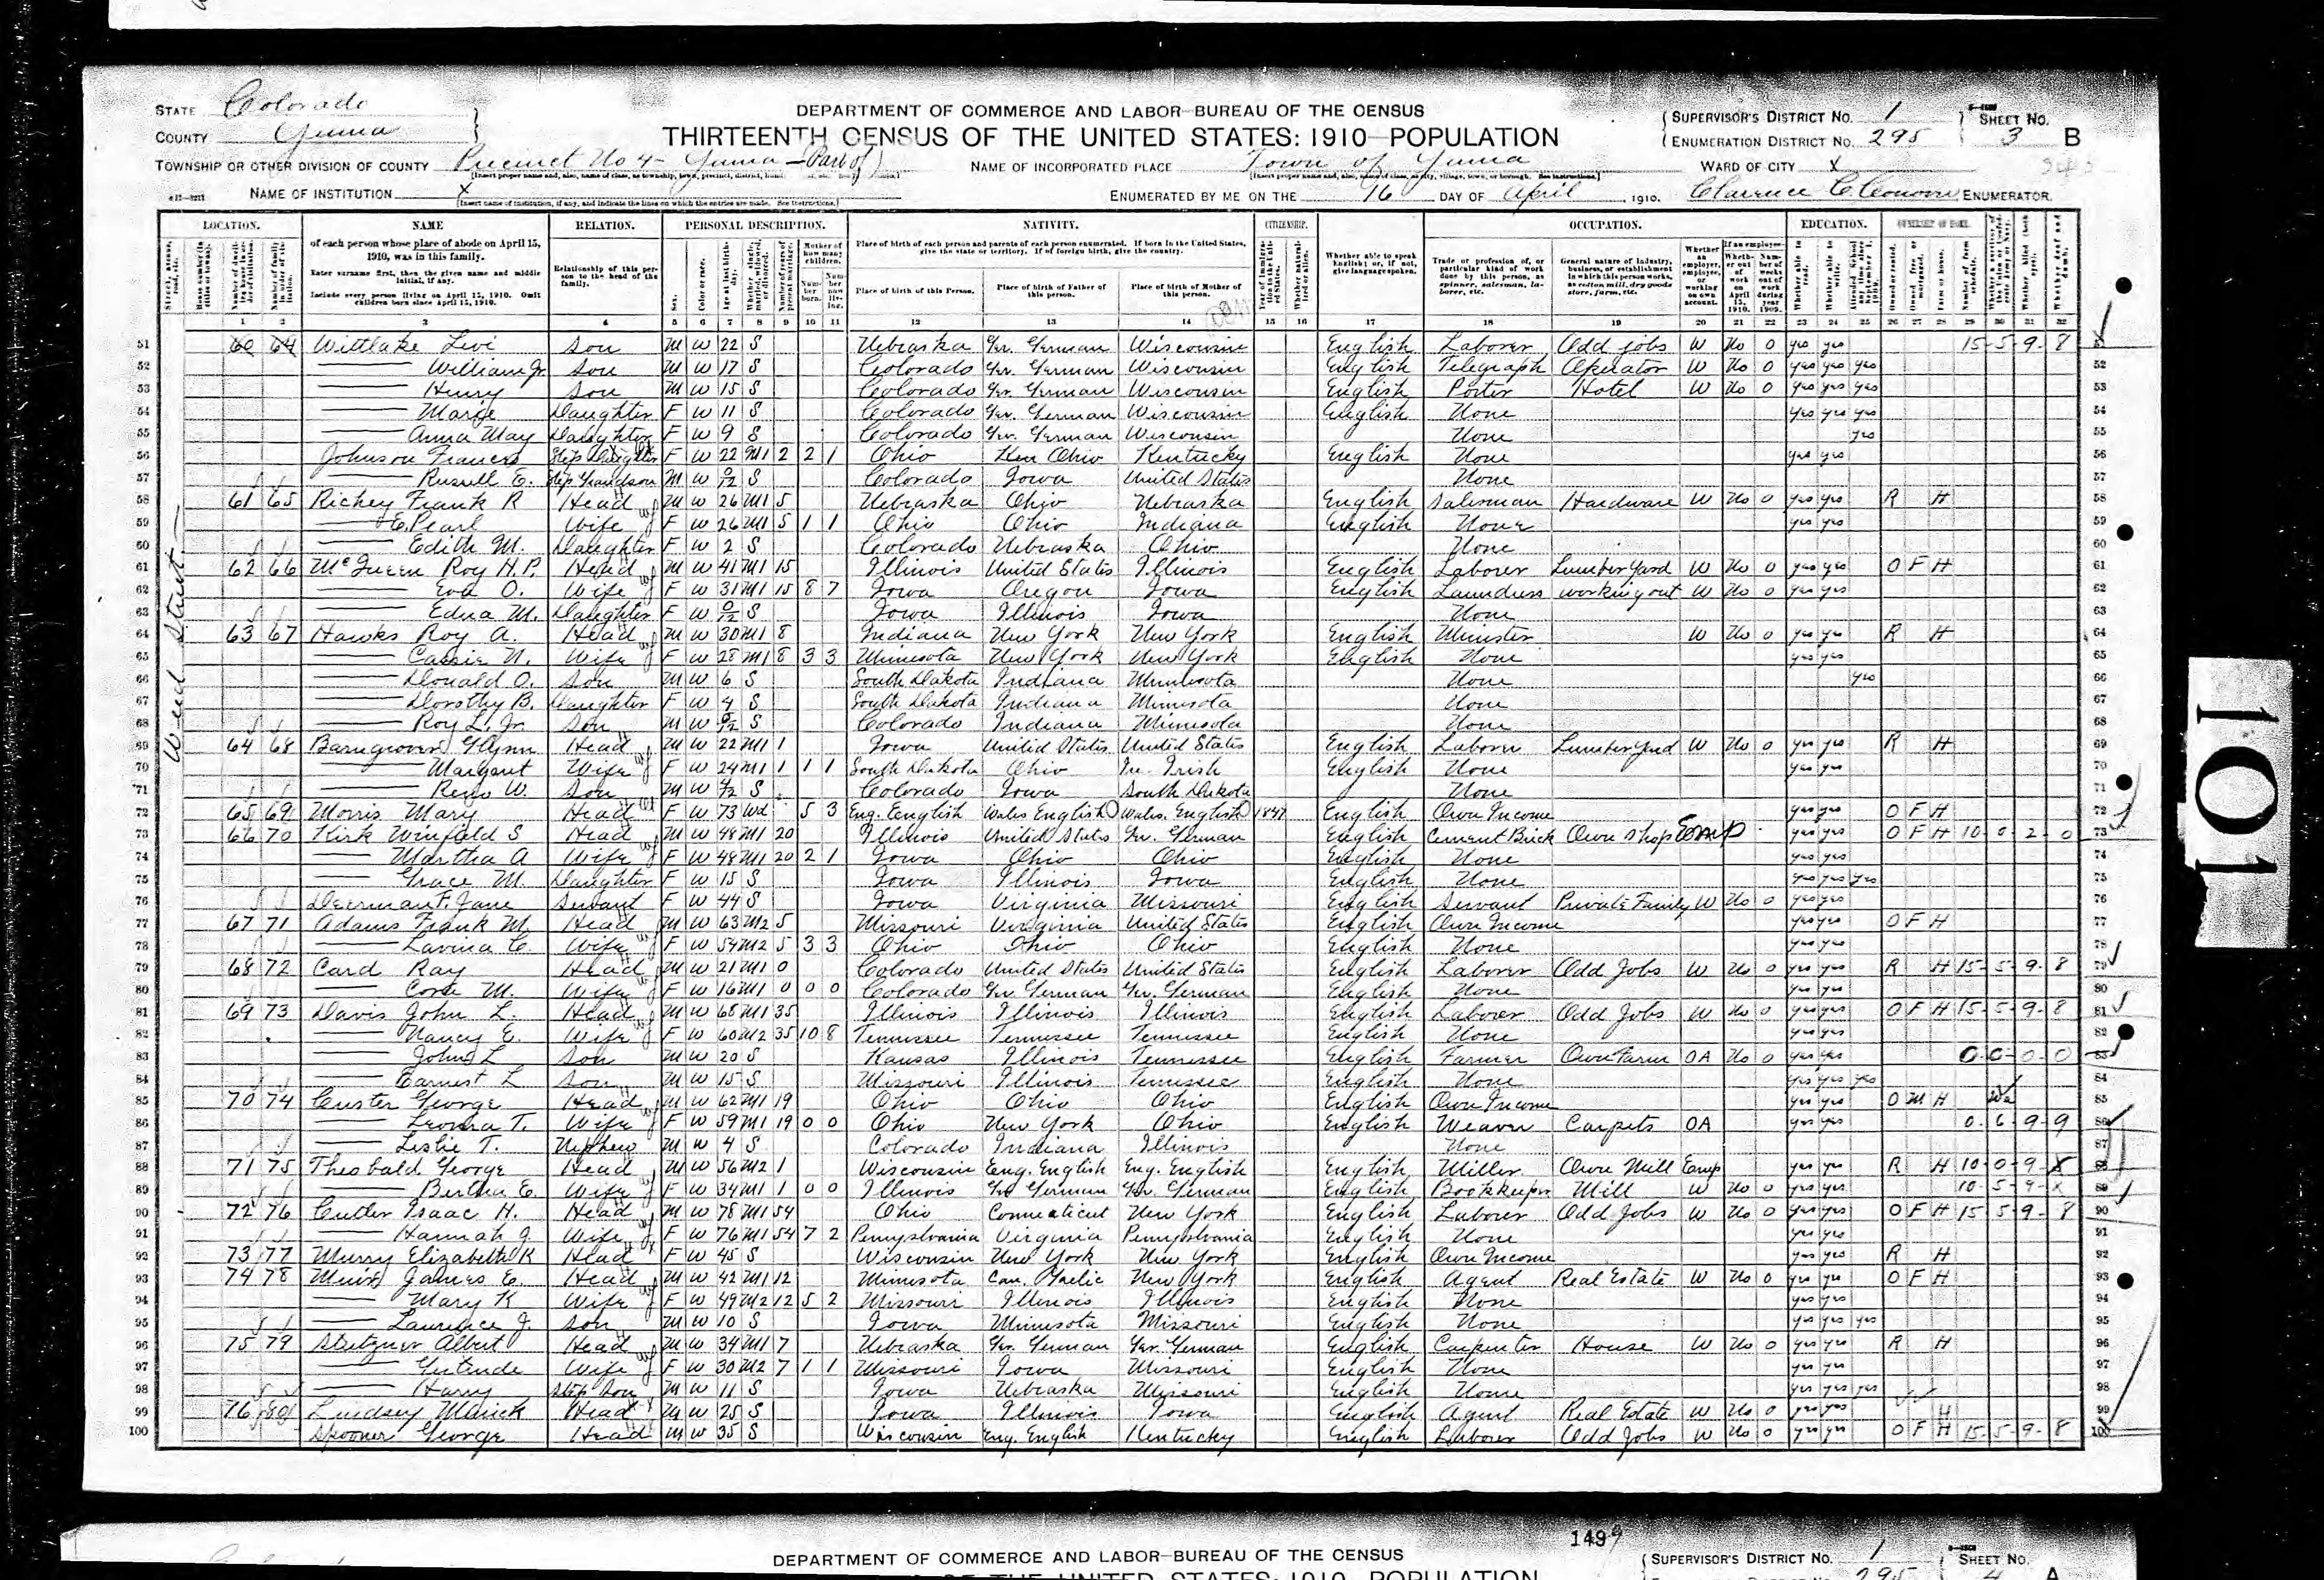 STATE Colorado
COUNTY Yuma
TOWNSHIP OR OTHER DIVISION OF COUNTY Precinct No 4 - Yuma - (Part of)
NAME OF INSTITUTION X
DEPARTMENT OF COMMERCE AND LABOR—BUREAU OF THE CENSUS
THIRTEENTH CENSUS OF THE UNITED STATES: 1910—POPULATION
NAME OF INCORPORATED PLACE Town of Yuma
ENUMERATED BY ME ON THE 16 DAY OF April, 1910. Clarence C. ENUMERATOR.
SUPERVISOR'S DISTRICT No. 1
ENUMERATION DISTRICT No. 295
SHEET No. 3 B
WARD OF CITY X
LOCATION. NAME RELATION. PERSONAL DESCRIPTION. NATIVITY. CITIZENSHIP. OCCUPATION. EDUCATION. OWNERSHIP OF HOME.
of each person whose place of abode on April 15, 1910, was in this family.
Enter surname first, then the given name and middle initial, if any.
Include every person living on April 15, 1910. Omit children born since April 15, 1910.
Relationship of this person to the head of the family.
Place of birth of each person and parents of each person enumerated. If born in the United States, give the state or territory. If of foreign birth, give the country.
Place of birth of this Person. Place of birth of Father of this person. Place of birth of Mother of this person.
Whether able to speak English; or, if not, give language spoken.
Trade or profession of, or particular kind of work done by this person, as spinner, salesman, laborer, etc.
General nature of industry, business, or establishment in which this person works, as cotton mill, dry goods store, farm, etc.
1 2 3 4 5 6 7 8 9 10 11 12 13 14 15 16 17 18 19 20 21 22 23 24 25 26 27 28 29 30 31 32
51 60 64 Wittlake Levi Son M W 22 S Nebraska Ger. German Wisconsin English Laborer Odd jobs W No 0 yes yes 15-5-9-8
52 — William Jr. Son M W 17 S Colorado Ger. German Wisconsin English Telegraph Operator W No 0 yes yes yes 52
53 — Henry Son M W 15 S Colorado Ger. German Wisconsin English Porter Hotel W No 0 yes yes yes 53
54 — Marge Daughter F W 11 S Colorado Ger. German Wisconsin English None yes yes yes 54
55 — Anna May Daughter F W 9 S Colorado Ger. German Wisconsin None yes 55
56 Johnson Frances Step Daughter F W 22 M1 2 2 1 Ohio Ohio Kentucky English None yes yes 56
57 — Russell E. Step Grandson M W S Colorado Iowa United States None 57
58 61 65 Richey Frank R Head M W 26 M1 5 Nebraska Ohio Nebraska English Salesman Hardware W No 0 yes yes R H 58
59 — E. Pearl Wife F W 26 M1 5 1 1 Ohio Ohio Indiana English None yes yes 59
60 — Edith M. Daughter F W 2 S Colorado Nebraska Ohio None 60
61 62 66 Roy H.P. Head M W 41 M1 15 Illinois United States Illinois English Laborer Lumber Yard W No 0 yes yes O F H 61
62 — Eva O. Wife F W 31 M1 15 8 7 Iowa Oregon Iowa English Laundress working out W No 0 yes yes 62
63 — Edna M. Daughter F W S Iowa Illinois Iowa None 63
64 63 67 Hawks Roy A. Head M W 30 M1 8 Indiana New York New York English Minister W No 0 yes yes R H 64
65 — Cassie N. Wife F W 28 M1 8 3 3 Minnesota New York New York English None yes yes 65
66 — Donald O. Son M W 6 S South Dakota Indiana Minnesota None yes 66
67 — Dorothy B. Daughter F W 4 S South Dakota Indiana Minnesota None 67
68 — Roy L. Jr. Son M W S Colorado Indiana Minnesota None 68
69 64 68 Baregrover Glynn Head M W 22 M1 1 Iowa United States United States English Laborer Lumber Yard W No 0 yes yes R H 69
70 — Margaret Wife F W 24 M1 1 1 1 South Dakota Ohio Ire. Irish English None yes yes 70
71 — Reno W. Son M W S Colorado Iowa South Dakota None 71
72 65 69 Morris Mary Head F W 73 Wd 5 3 Eng. English Wales English Wales. English 1847 English Own Income yes yes O F H 72
73 66 70 Kirk Winfield S Head M W 48 M1 20 Illinois United States Ger. German English Cement Brick Own Shop Emp yes yes O F H 10-0-2-0 73
74 — Martha A Wife F W 48 M1 20 2 1 Iowa Ohio Ohio English None yes yes 74
75 — Grace M. Daughter F W 15 S Iowa Illinois Iowa English None yes yes yes 75
76 Jane Servant F W 44 S Iowa Virginia Missouri English Servant Private Family W No 0 yes yes 76
77 67 71 Adams Frank M. Head M W 63 M2 5 Missouri Virginia United States English Own Income yes yes O F H 77
78 — Lavina C. Wife F W 54 M2 5 3 3 Ohio Ohio Ohio English None yes yes 78
79 68 72 Card Ray Head M W 21 M1 0 Colorado United States United States English Laborer Odd Jobs W No 0 yes yes R H 15-5-9-8 79
80 — Cora M. Wife F W 16 M1 0 0 0 Colorado Ger German Ger. German English None yes yes 80
81 69 73 Davis John L. Head M W 68 M1 35 Illinois Illinois Illinois English Laborer Odd Jobs W No 0 yes yes O F H 15-5-9-8 81
82 — Nancy E. Wife F W 60 M2 35 10 8 Tennessee Tennessee Tennessee English None yes yes 82
83 — John L Son M W 20 S Kansas Illinois Tennessee English Farmer Own Farm OA No 0 yes yes 0-0-0-0 83
84 — Earnest L Son M W 15 S Missouri Illinois Tennessee English None yes yes yes 84
85 70 74 Custer George Head M W 62 M1 19 Ohio Ohio Ohio English Own Income yes yes O M H 85
86 — Leona T. Wife F W 59 M1 19 0 0 Ohio New York Ohio English Weaver Carpets OA yes yes 0-6-9-9 86
87 — Leslie T. Nephew M W 4 S Colorado Indiana Illinois None 87
88 71 75 Theobald George Head M W 56 M2 1 Wisconsin Eng. English Eng. English English Miller Own Mill Emp yes yes R H 10-0-9-X 88
89 — Bertha E. Wife F W 34 M1 1 0 0 Illinois Ger German Ger. German English Bookkeeper Mill W No 0 yes yes 10-5-9-X 89
90 72 76 Cutler Isaac H. Head M W 78 M1 54 Ohio Connecticut New York English Laborer Odd Jobs W No 0 yes yes O F H 15 5-9-8 90
91 — Hannah J. Wife F W 76 M1 54 7 2 Pennsylvania Virginia Pennsylvania English None yes yes 91
92 73 77 Murry Elizabeth K Head F W 45 S Wisconsin New York New York English Own Income yes yes R H 92
93 74 78 Muir James E. Head M W 42 M1 12 Minnesota Can. Gaelic New York English Agent Real Estate W No 0 yes yes O F H 93
94 — Mary K Wife F W 49 M2 12 5 2 Missouri Illinois Illinois English None yes yes 94
95 — Laurence J. Son M W 10 S Iowa Minnesota Missouri English None yes yes yes 95
96 75 79 Stutzner Albert Head M W 34 M1 7 Nebraska Ger. German Ger. German English Carpenter House W No 0 yes yes R H 96
97 — Gertrude Wife F W 30 M2 7 1 1 Missouri Iowa Missouri English None yes yes 97
98 — Harry Step Son M W 11 S Iowa Nebraska Missouri English None yes yes yes 98
99 76 80 Lindsey Head M W 25 S Iowa Illinois Iowa English Agent Real Estate W No 0 yes yes H 99
100 Spooner George Head M W 35 S Wisconsin Eng. English Kentucky English Laborer Odd Jobs W No 0 yes yes O F H 15-5-9-8 100
Street
101
149
DEPARTMENT OF COMMERCE AND LABOR—BUREAU OF THE CENSUS
SUPERVISOR'S DISTRICT No. 1
SHEET No.
295 4 A